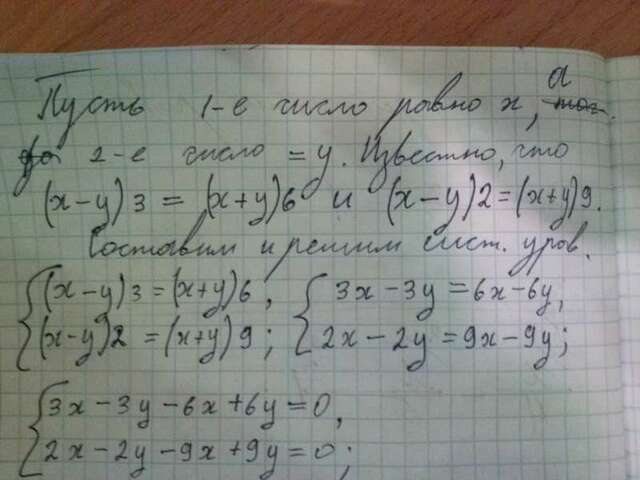 Пусть 1-е число равно x, а
2-е число = y. Известно, что
(x-y)3 = (x+y)6 и (x-y)2=(x+y)9.
Составим и решим сист. уров.
{(x-y)3=(x+y)6, {3x-3y=6x-6y,
{(x-y)2=(x+y)9; {2x-2y=9x-9y;
{3x-3y-6x+6y=0,
{2x-2y-9x+9y=0;